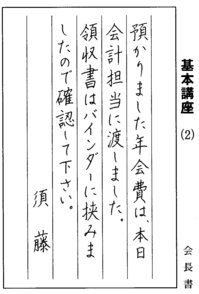 基本講座
(2)
会長書
預かりました年会費は、本日
会計担当に渡しました。
領収書はバインダーに挟みま
したので確認して下さい。
須藤